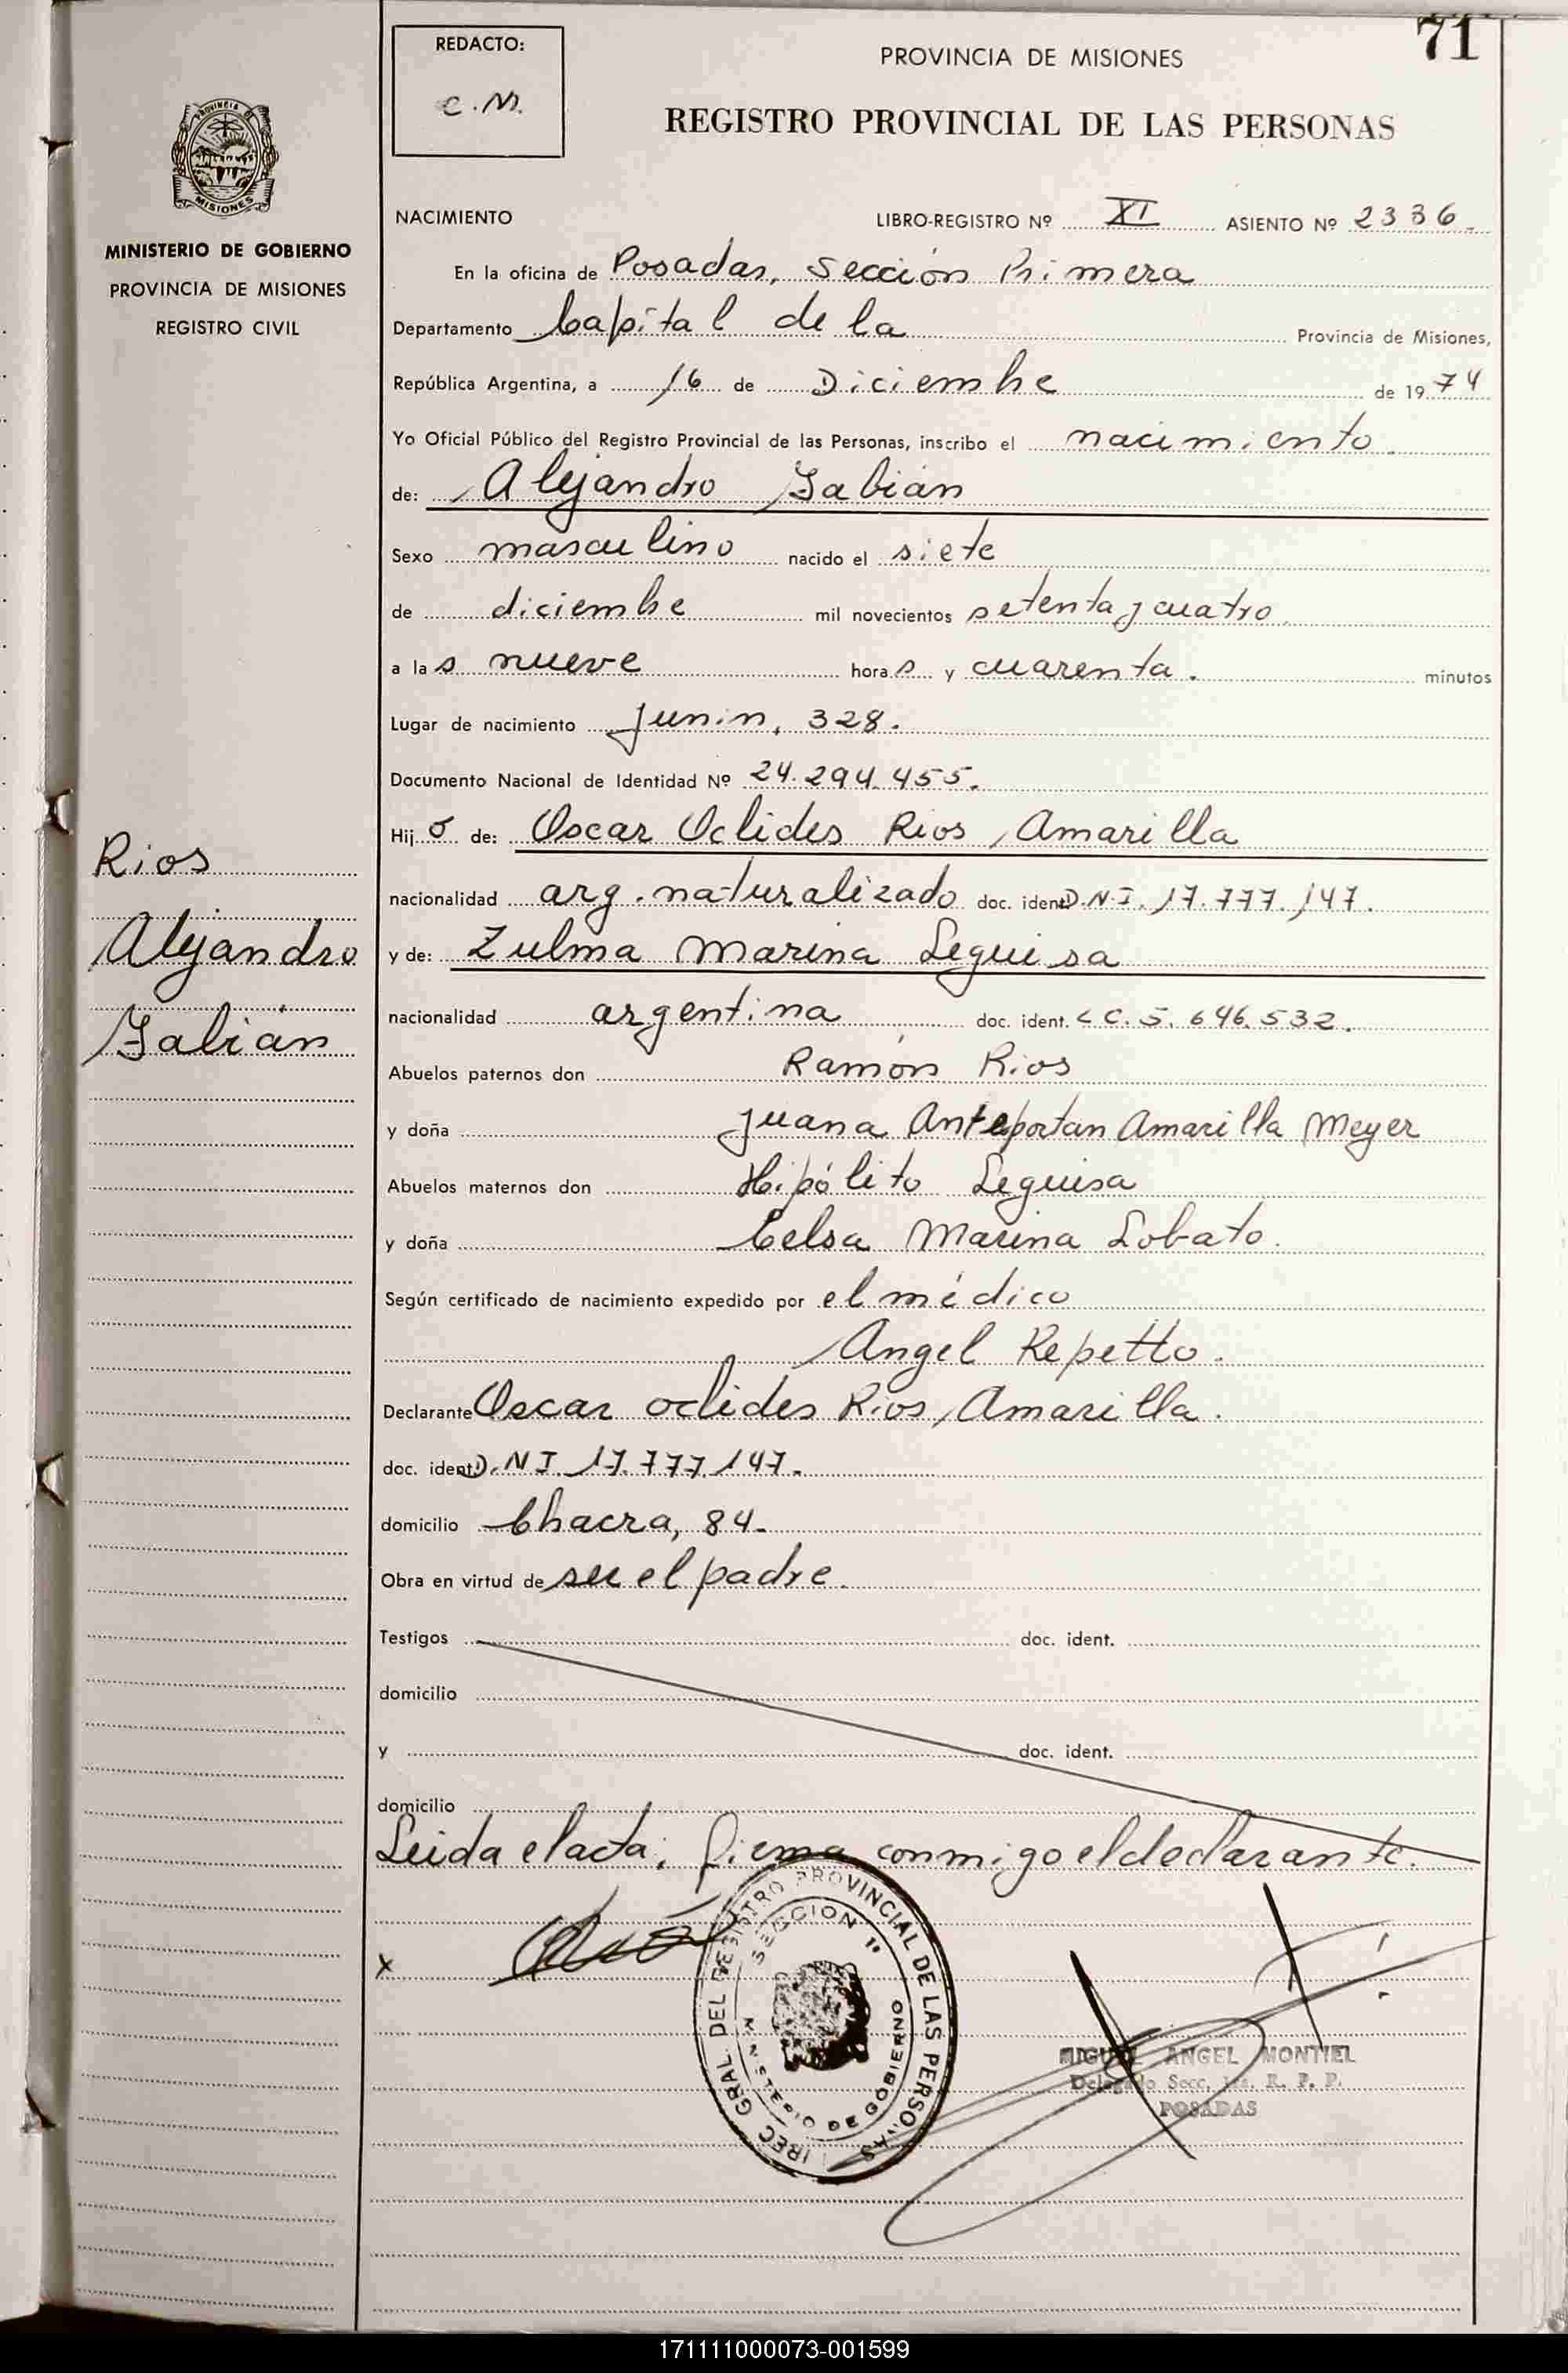 71
REDACTO:
C. M.
PROVINCIA DE MISIONES
REGISTRO PROVINCIAL DE LAS PERSONAS
PROVINCIA D
MISIONES
MINISTERIO DE GOBIERNO
PROVINCIA DE MISIONES
REGISTRO CIVIL
NACIMIENTO LIBRO-REGISTRO Nº XI ASIENTO Nº 2336.
En la oficina de Posadas, Sección Primera
Departamento Capital de la Provincia de Misiones,
República Argentina, a 16 de Diciembre de 1974
Yo Oficial Público del Registro Provincial de las Personas, inscribo el nacimiento
de: Alejandro Fabián
Sexo masculino nacido el siete
de diciembre mil novecientos setenta y cuatro
a las nueve horas y cuarenta. minutos
Lugar de nacimiento Junin, 328.
Documento Nacional de Identidad Nº 24.294.455.
Hijo de: Oscar Oclides Rios Amarilla
nacionalidad arg. naturalizado doc. ident D.N.I. 17.777.147.
y de: Zulma Marina Leguisa
nacionalidad argentina doc. ident. L C. 5.646.532.
Abuelos paternos don Ramón Rios
y doña Juana Anteportan Amarilla Meyer
Abuelos maternos don Hipólito Leguisa
y doña Celsa Marina Lobato.
Según certificado de nacimiento expedido por el médico
Angel Repetto.
Declarante Oscar oclides Rios Amarilla.
doc. ident D.N I. 17.777.147.
domicilio Chacra, 84.
Obra en virtud de ser el padre.
Testigos doc. ident.
domicilio
y doc. ident.
domicilio
Leida el acta, firma conmigo el declarante.
Rios
Alejandro
Fabián
x
DIREC GRAL. DEL REGISTRO PROVINCIAL DE LAS PERSONAS
SECCION 1ª
MINISTERIO DE GOBIERNO
MIGUEL ANGEL MONTIEL
Delegado Secc. 1ra. R. P. P.
POSADAS
171111000073-001599